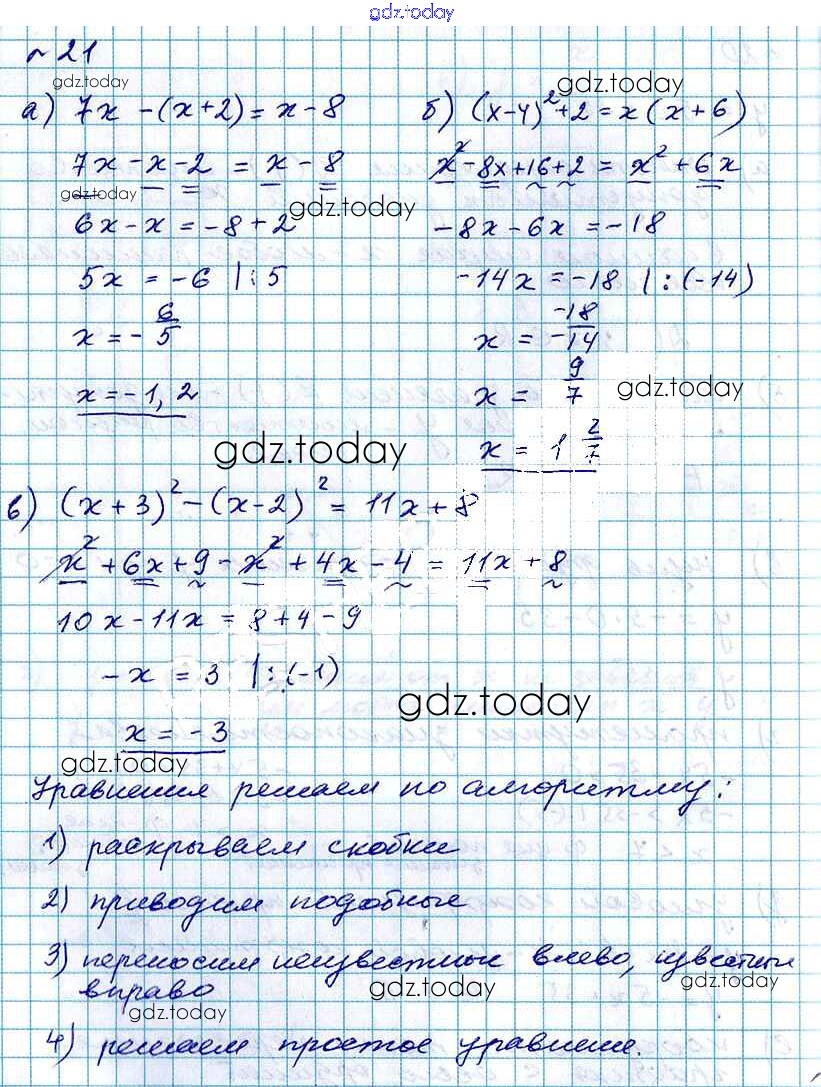 gdz.today
№ 21
gdz.today gdz.today
а) 7x - (x+2) = x - 8
б) (x-4)² + 2 = x (x+6)
7x - x - 2 = x - 8
x² - 8x + 16 + 2 = x² + 6x
gdz.today gdz.today
6x - x = -8 + 2
-8x - 6x = -18
5x = -6 | : 5
-14x = -18 | : (-14)
x = - 6/5
x = - -18/-14
x = -1,2
x = 9/7
gdz.today
gdz.today
x = 1 2/7
в) (x+3)² - (x-2)² = 11x + 8
x² + 6x + 9 - x² + 4x - 4 = 11x + 8
10x - 11x = 8 + 4 - 9
-x = 3 | : (-1)
gdz.today
x = -3
gdz.today
Уравнения решаем по алгоритму:
1) раскрываем скобки
2) приводим подобные
3) переносим неизвестные влево, известные
вправо
gdz.today gdz.today
gdz.today
4) решаем простое уравнение.